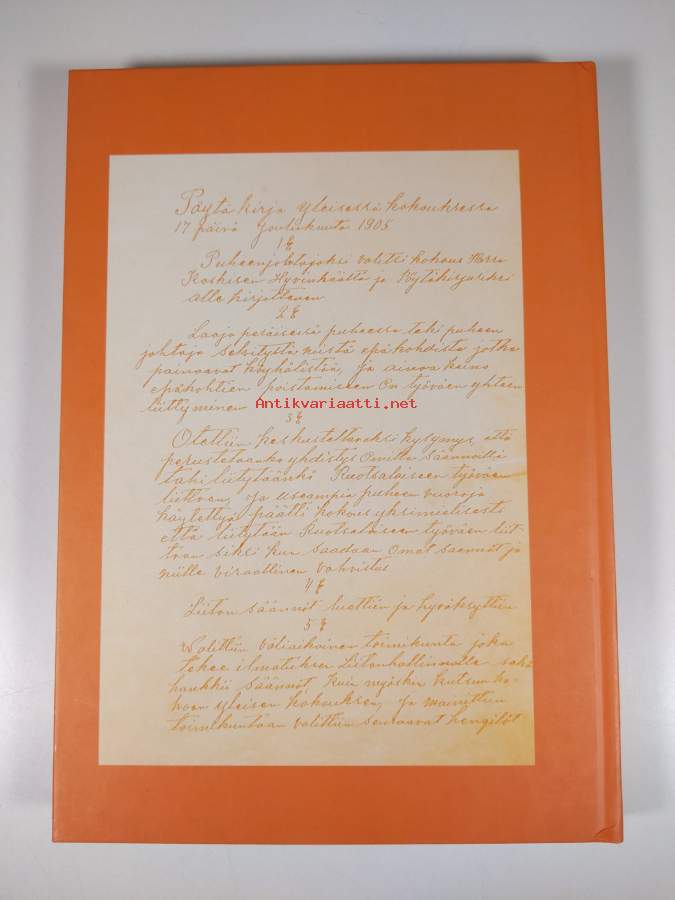 Pöytäkirja Yleisessä kokouksessa
17 päivä Joulukuuta 1905
1 §
Puheenjohtajaksi valitsi kokous Herra
Koskisen Hyvinkäältä ja Pöytäkirjuriksi
alle kirjottanen
2 §
Laaja peräisessä puheessa teki puheen
johtaja selvityttä niistä epäkohdista jotka
painaavat köyhälistöä, ja ainova keino
epäkohtien poistamiseen On työväen yhteen
liittyminen
Antikvariaatti.net
3 §
Otettiin keskusteltavaksi kysymys, että
perustetaanko yhdistys Omilla säännöillä
tahi liitytäänkö Ruotsalaiseen työväen
liittoon, ja useampia puheen vuoroja
käytettyä päätti kokous yksimielisesti
että liitytään Ruotsalaiseen työväen liit-
toon siksi kun saadaan Omat säännöt ja
niille viraallinen vahvistus
4 §
Liiton säännöt luettiin ja hyväksyttiin
5 §
Walittiin väliaikainen toimikunta joka
tekee ilmotuksen Liitonhallinnolle sekä
hankkii säännöt, kuin myöskin kutsuu ko-
koon yleisen kokouksen, ja mainittuun
toimikuntaan valittiin seuraavat hengilöt